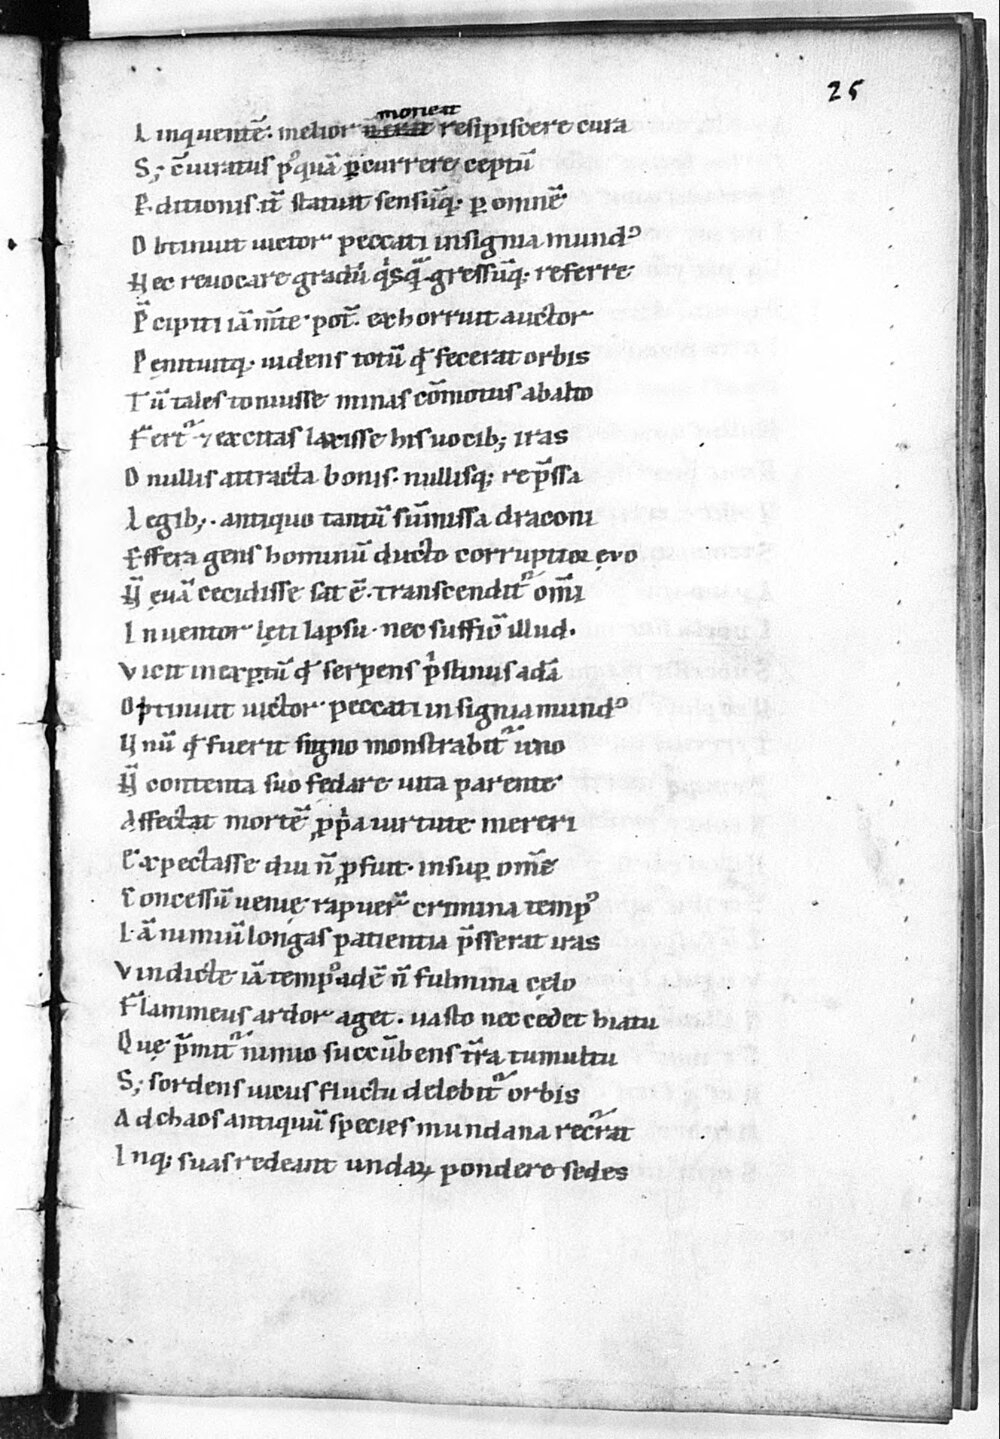 25
moneat
Linquentē. melior n̄ erat resipiscere cura
S; c̄iuratus p°quā ꝑcurrere ceptū
Ꝑditionis it̄ statuit sensūq; ꝑ omnē
Obtinuit uictor peccati insignia mund°
Nec reuocare gradū q̇sqͣ gressūq; referre
P̄cipiti iā m̄te pot̄ exhorruit auctor
Penituitq; uidens totū qđ fecerat orbis
Tū tales tonuisse minas cōmotus ab alto
Fert᷑ ⁊ excitas laxisse his uocib; iras
O nullis attracta bonis. nullisq; rep̄ssa
Legib;. antiquo tantū sūmissa draconi
Effera gens hominū ducto corruptior ęvo
N̄ ęuā cecidisse sat ē. transcendit᷑ om̄i
Inuentor lęti lapsu. nec suffić illud.
Vicit inexꝑtū qđ serpens p̓stinus adā
Optinuit uictor peccati insignia mund°
Unū qđ fuerit signo monstrabit᷑ uno
N̄ contenta suo fedare uita parente
Affectat mortē ꝓp̓a uirtute mereri
Expectasse diu n̄ ꝓfuit. insuꝑ om̄e
Concessū uenię rapuer̄ crimina temp°
Iā nimiū longas patientia p̄sserat iras
Vindicte iā temp° adē n̄ fulmina cęlo
Flammeus ardor aget. uasto nec cedet hiatu
Quę p̄mit᷑ nimio succūbens t̄ra tumultu
S; sordens uicus fluctu delebit᷑ orbis
Ad chaos antiquū species mundana recr̄at᷑
Inq; suas redeant undaꝝ pondere sedes